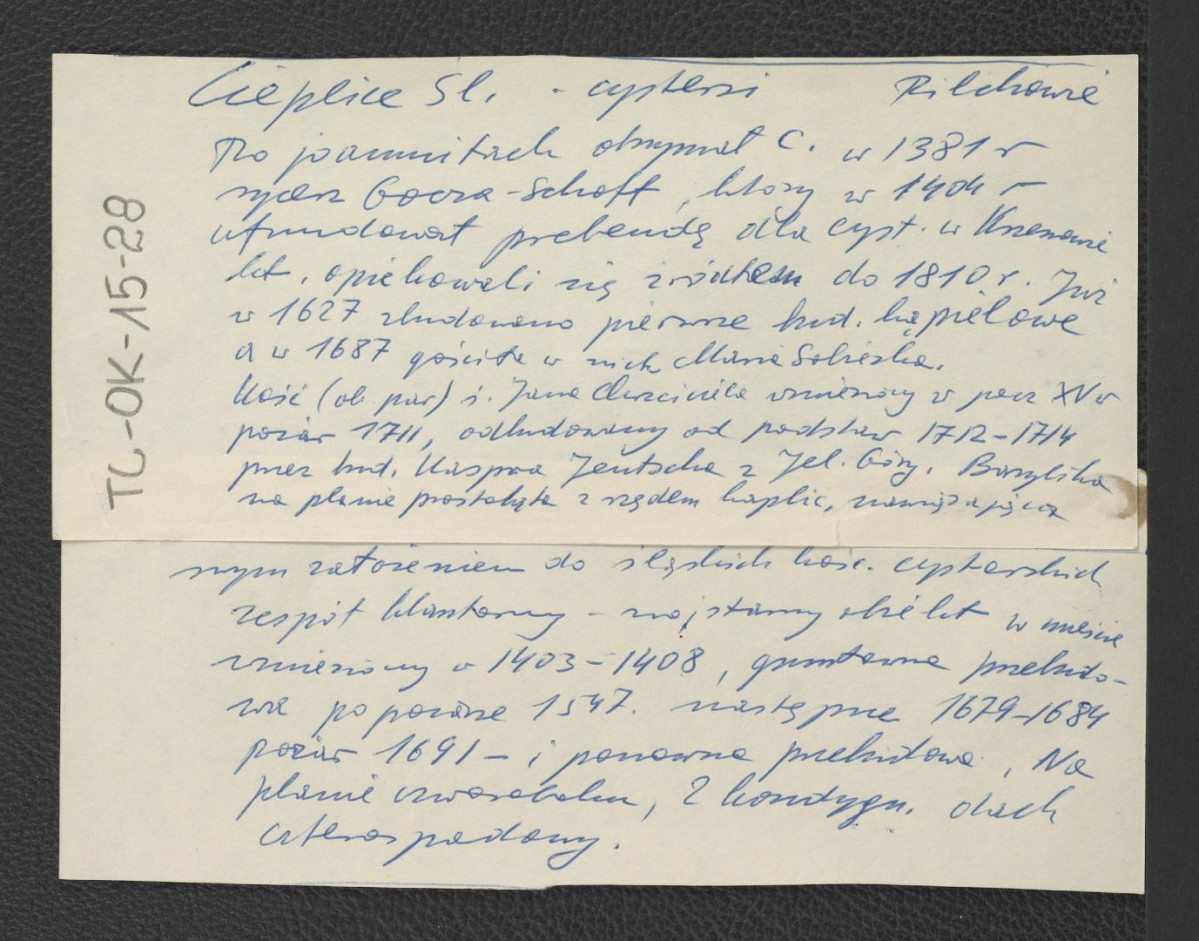 Cieplice Śl. - cystersi Pilchowie
Po joannitach otrzymał C. w 1381 r
rycerz Gocza-Schoff, który w 1404 r
ufundował prebendę dla cyst. w Krzeszowie
kt. opiekowali się źródłem do 1810 r. Już
w 1627 zbudowano pierwsze bud. kąpielowe
a w 1687 gościła w nich Maria Sobieska.
Kość (ob. par) ś. Jana Chrzciciela wzniesiony w pocz XV w
pożar 1711, odbudowany od podstaw 1712-1714
przez bud. Kaspra Jentscha z Jel. Góry. Bazylika
na planie prostokąta z rzędem kaplic, nawiązująca
swym założeniem do śląskich kośc. cysterskich
zespół klasztorny - najstarszy obiekt w mieście
wzniesiony w 1403-1408, gruntowna przebudo-
wa po pożarze 1547. następne 1679-1684
pożar 1691 - i ponowna przebudowa. Na
planie czworoboku, 2 kondygn. dach
czterospadowy.
TC-OK-15-28